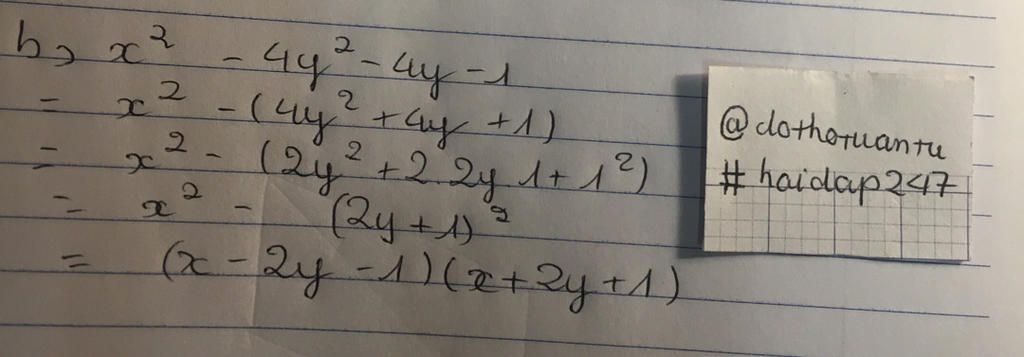 b, x² - 4y² - 4y - 1
= x² - (4y² + 4y + 1)
= x² - (2y² + 2.2y.1 + 1²)
= x² - (2y + 1)²
= (x - 2y - 1)(x + 2y + 1)
@dothotuantu
#hoidap247